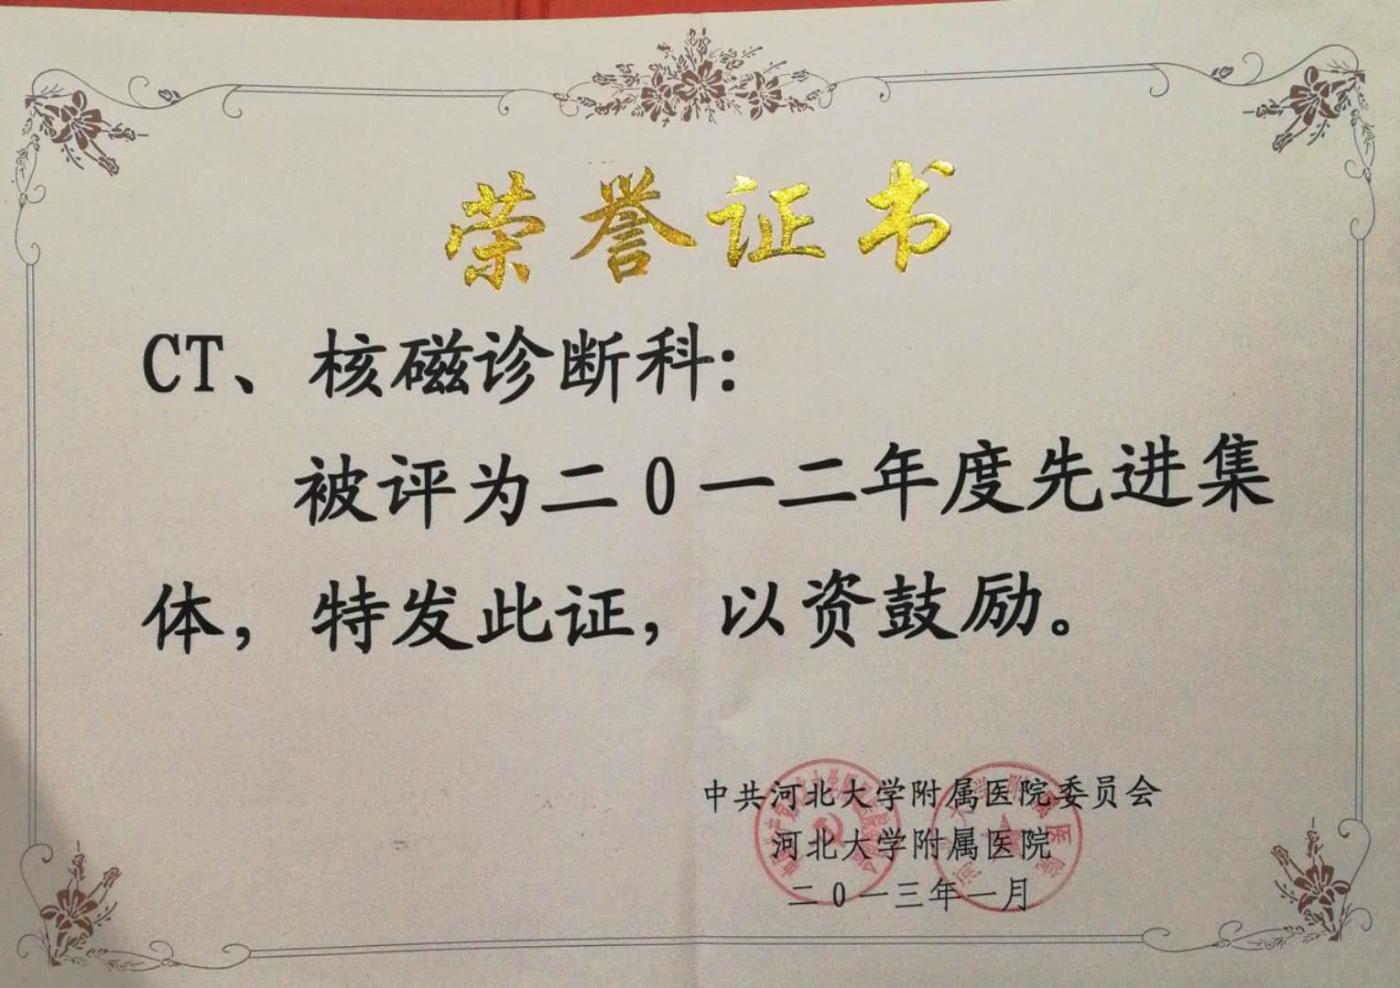 荣誉证书
CT、核磁诊断科：
被评为二0一二年度先进集
体，特发此证，以资鼓励。
中共河北大学附属医院委员会
河北大学附属医院
二0一三年一月